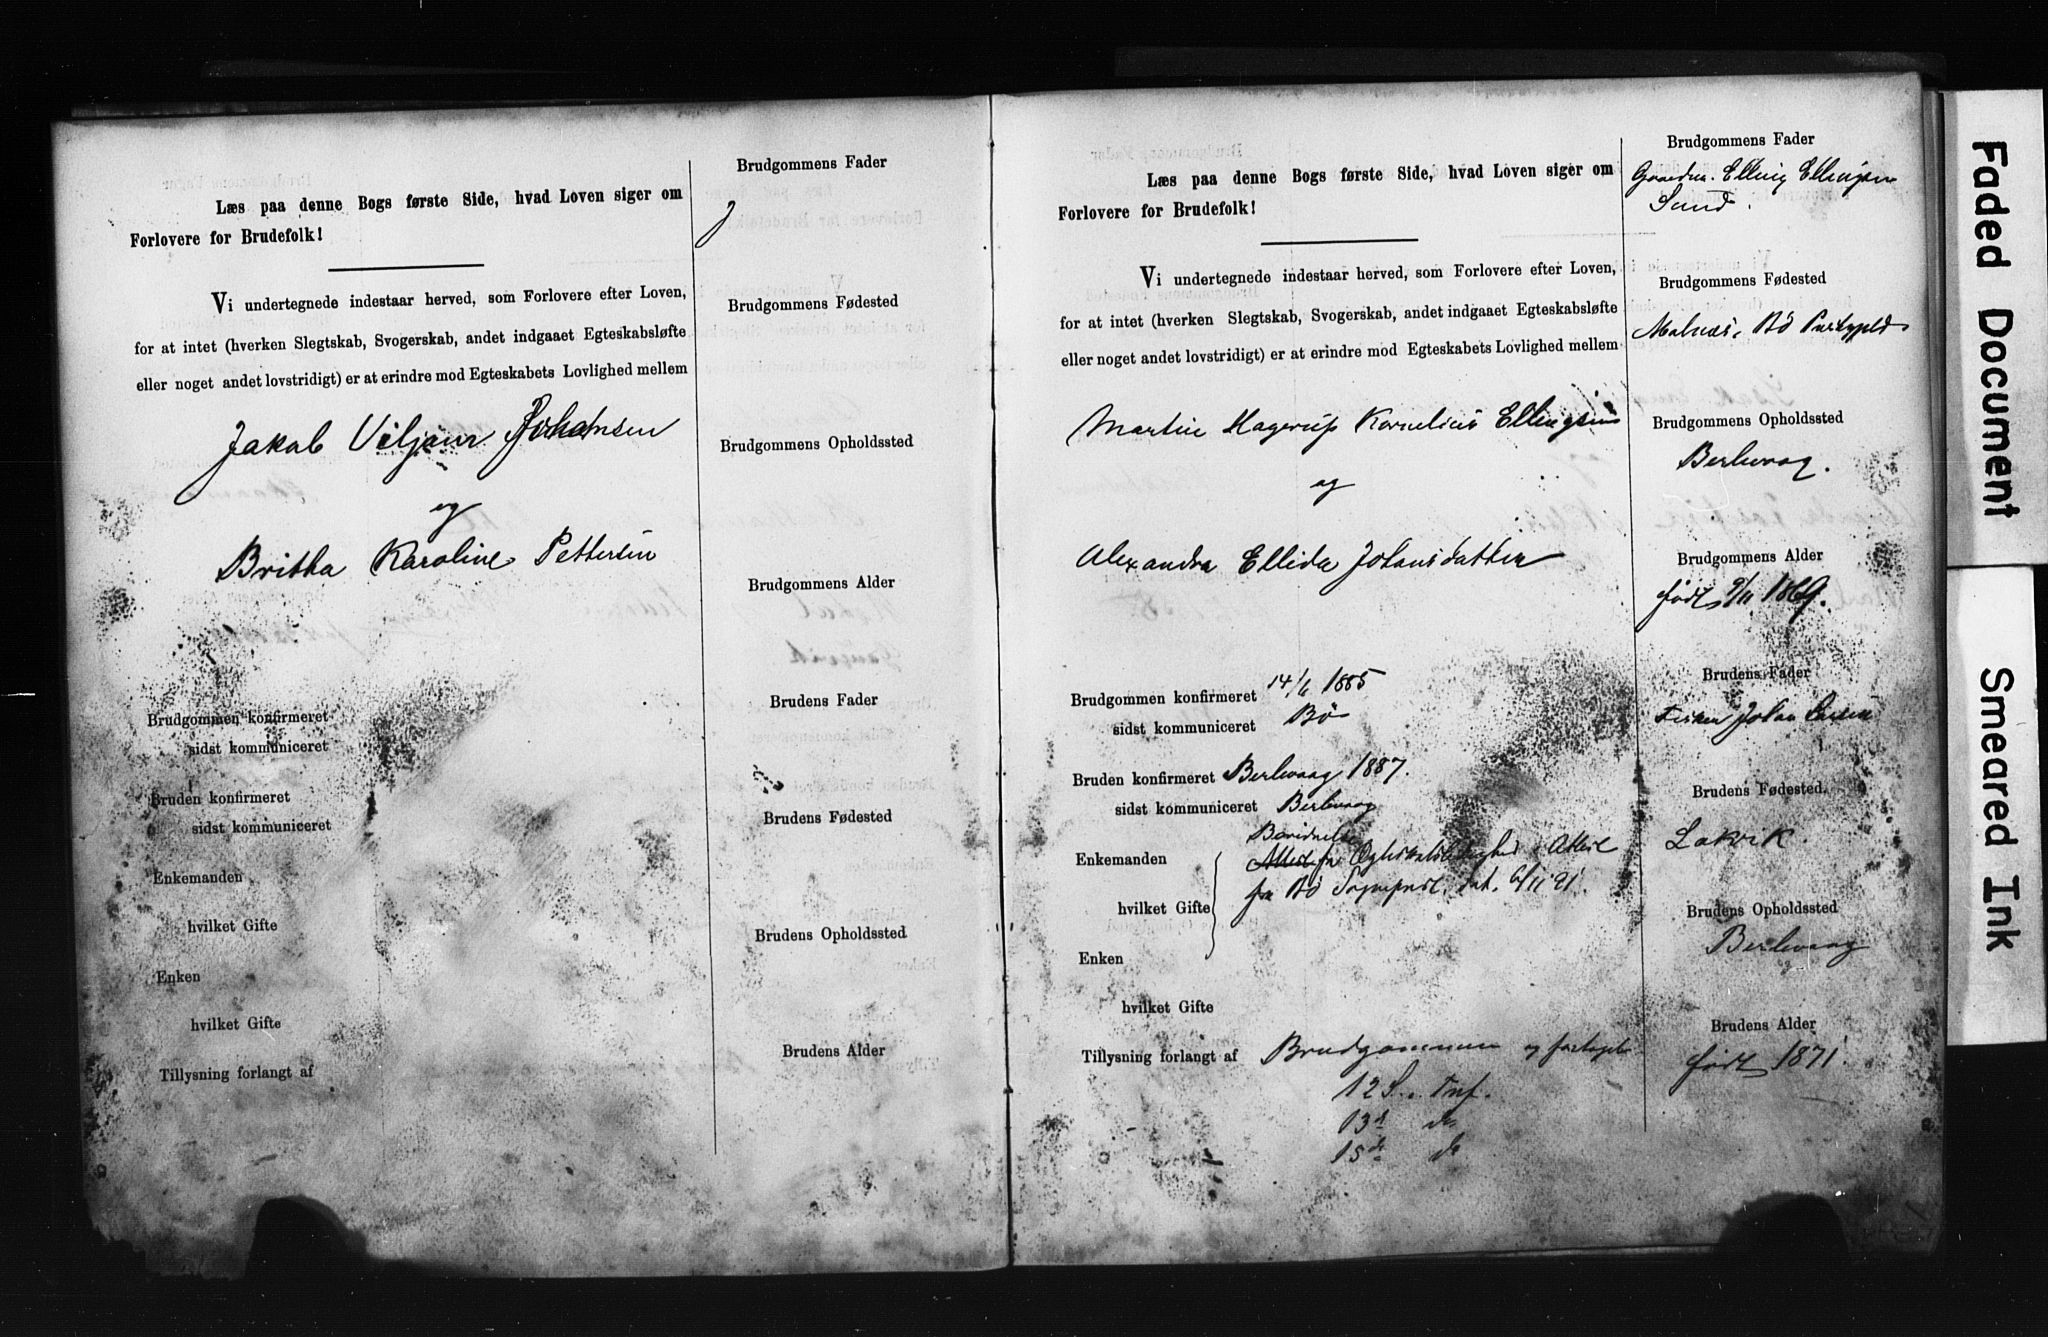 Læs paa denne Bogs første Side, hvad Loven siger om
Forlovere for Brudefolk!
Vi undertegnede indestaar herved, som Forlovere efter Loven,
for at intet (hverken Slegtskab, Svogerskab, andet indgaaet Egteskabsløfte
eller noget andet lovstridigt) er at erindre mod Egteskabets Lovlighed mellem
Jakob Viljam Johansen
og
Britha Karoline Pettersen
Brudgommen konfirmeret
sidst kommuniceret
Bruden konfirmeret
sidst kommuniceret
Enkemanden
hvilket Gifte
Enken
hvilket Gifte
Tillysning forlangt af
Brudgommens Fader
J
Brudgommens Fødested
Brudgommens Opholdssted
Brudgommens Alder
Brudens Fader
Brudens Fødested
Brudens Opholdssted
Brudens Alder
Læs paa denne Bogs første Side, hvad Loven siger om
Forlovere for Brudefolk!
Vi undertegnede indestaar herved, som Forlovere efter Loven,
for at intet (hverken Slegtskab, Svogerskab, andet indgaaet Egteskabsløfte
eller noget andet lovstridigt) er at erindre mod Egteskabets Lovlighed mellem
Martin Hagerup Kornelius Ellingsen
og
Alexandra Ellida Johansdatter
Brudgommen konfirmeret 14/6 1885
sidst kommuniceret Bø
Bruden konfirmeret Berlevaag 1887.
sidst kommuniceret Berlevaag
Enkemanden
fra Bø Sogneprest. dat. 6/11 91.
hvilket Gifte
Enken
hvilket Gifte
Tillysning forlangt af Brudgommen og foretaget
12 S. e. Tref.
13d do
15de do
Brudgommens Fader
Gaardm. Elling Ellingsen
Sund.
Brudgommens Fødested
Malnæs, Bø Prstgjeld
Brudgommens Opholdssted
Berlevaag.
Brudgommens Alder
født 9/11 1869.
Brudens Fader
Fisker Johan Larsen
Brudens Fødested.
Lakvik.
Brudens Opholdssted
Berlevaag
Brudens Alder
født 1871.
Faded Document
Smeared Ink